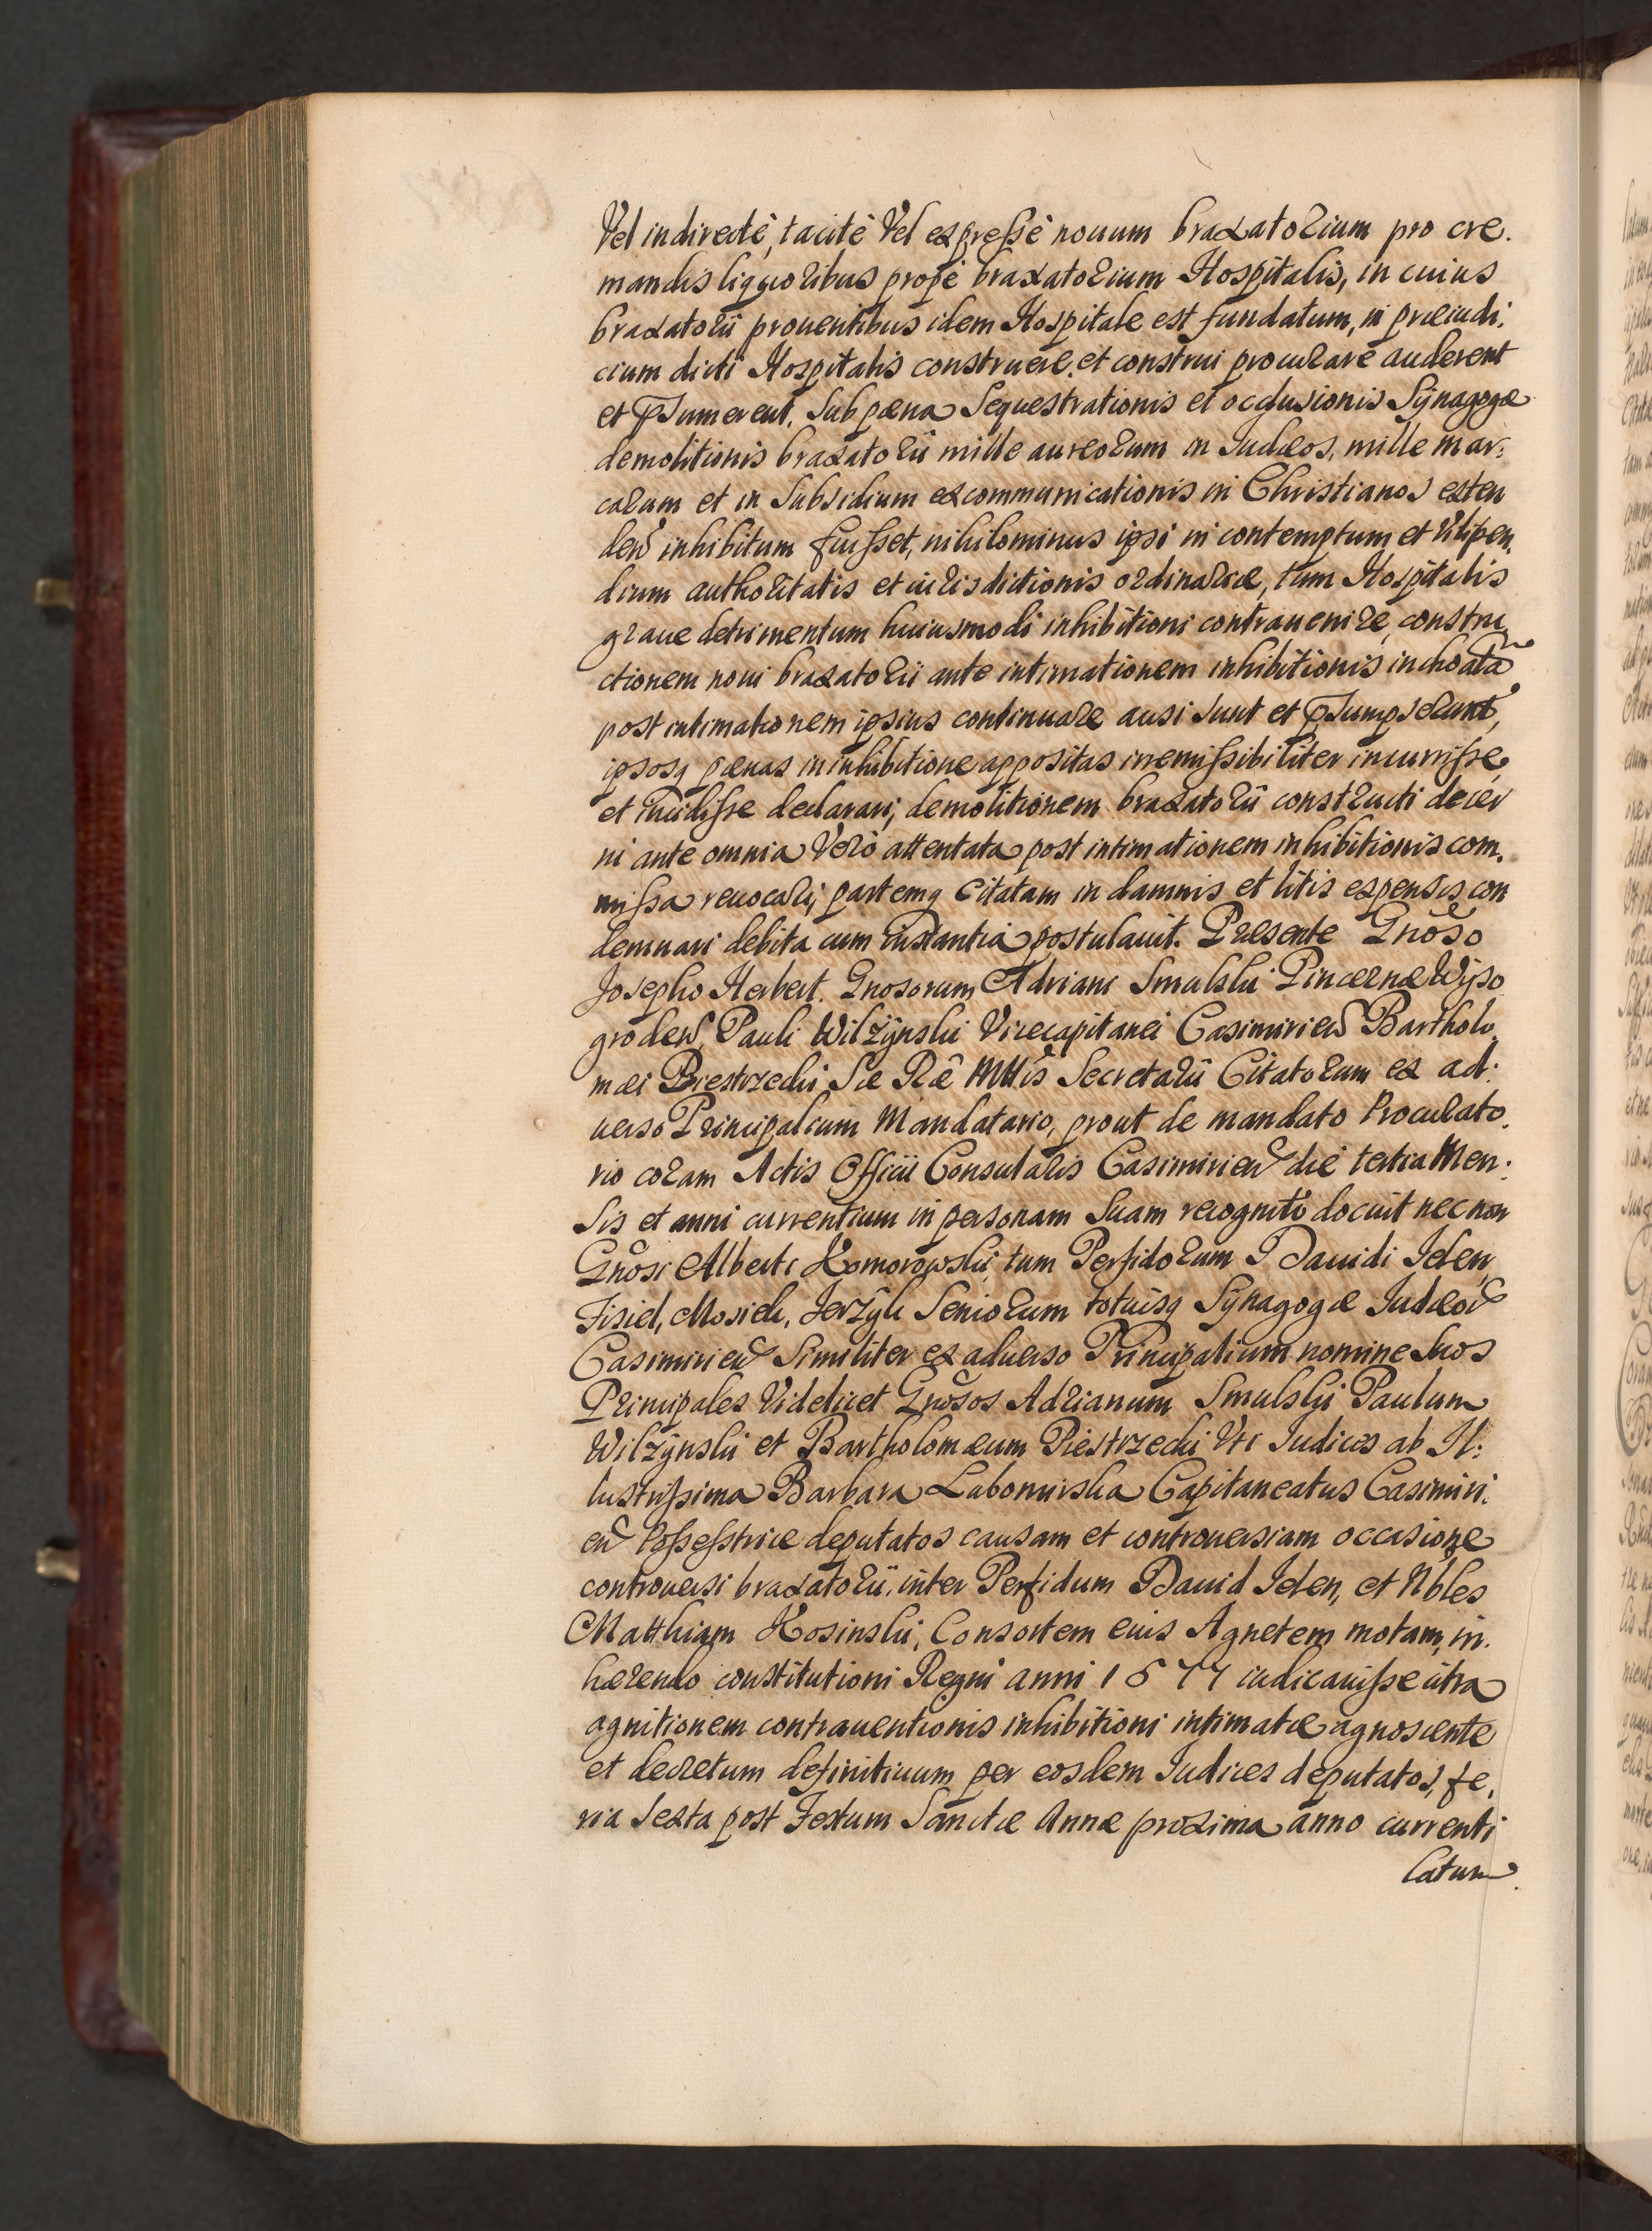 Vel indirectè, tacitè Vel expressè nouum braxatorium pro cre.
mandis liquoribus propè braxatorium Hospitalis, in cuius
braxatorii prouentibus idem Hospitale est fundatum, in præiudi.
cium dicti Hospitalis construere, et construi procurare auderent
et p̄sumerent, sub pœna Sequestrationis et occlusionis Synagogæ
demolitionis braxatorii mille aureorum in Judæos, mille mar:
carum et in Subsidium excommunicationis in Christianos exten
den̄ inhibitum fuisset, nihilominus ipsi in contemptum et Vilipen.
dium authoritatis et iurisdictionis ordinariæ, tum Hospitalis
graue detrimentum huiusmodi inhibitioni contrauenire, constru
ctionem noui braxatorii ante intimationem inhibitionis inchoatā
post intimationem ipsius continuare ausi sunt et p̄sumpserunt,
ipsosq pœnas in inhibitione appositas irremissibiliter incurrisse
et incidisse declarari, demolitionem braxatorii constructi decer
ni ante omnia Verò attentata post intimationem inhibitionis com.
missa reuocari, partemq Citatam in damnis et litis expensis con
demnari debita cum instantia postulauit. Præsente Gnōso
Josepho Herbert. Gnosorum Adriani Smulski Pincernæ Wyso
groden̄, Pauli Wilzÿnski Vicecapitanei Casimirien̄ Bartholo
mæi Piestrzecki Sæ Ræ Mttis Secretarii Citatorum ex ad:
uerso Principalium Mandatario, prout de mandato Procurato.
rio coram Actis Officii Consularis Casimirien̄ die tertia Men:
sis et anni currentium in personam Suam recognito docuit nec non
Gnōsi Alberti Komorowski, tum Perfidorum Dauidi Jelen,
Fisiel, Mosiek, Jerzÿk Seniorum totiusq Synagogæ Judæor̄
Casimirien̄ Similiter ex aduerso Principalium nomine Suos
Principales Videlicet Gnōsos Adrianum Smulskj Paulum
Wilzÿnski et Bartholomæum Piestrzecki Vti Judices ab Il:
lustrissima Barbara Lubomirska Capitaneatus Casimiri:
en̄ Possessstrice deputatos causam et controuersiam occasione
controuersi braxatorii, inter Perfidum Dauid Jelen, et Nb̄les
Matthiam Kosinski, Consortem eius Agnetem motam, in.
hærendo constitutioni Regni anni 1677 iudicauisse citra
agnitionem contrauentionis inhibitioni intimatæ agnoscente
et decretum definitiuum per eosdem Judices deputatos, fe.
ria Sexta post Festum Sanctæ Annæ proxima anno currenti
Latum